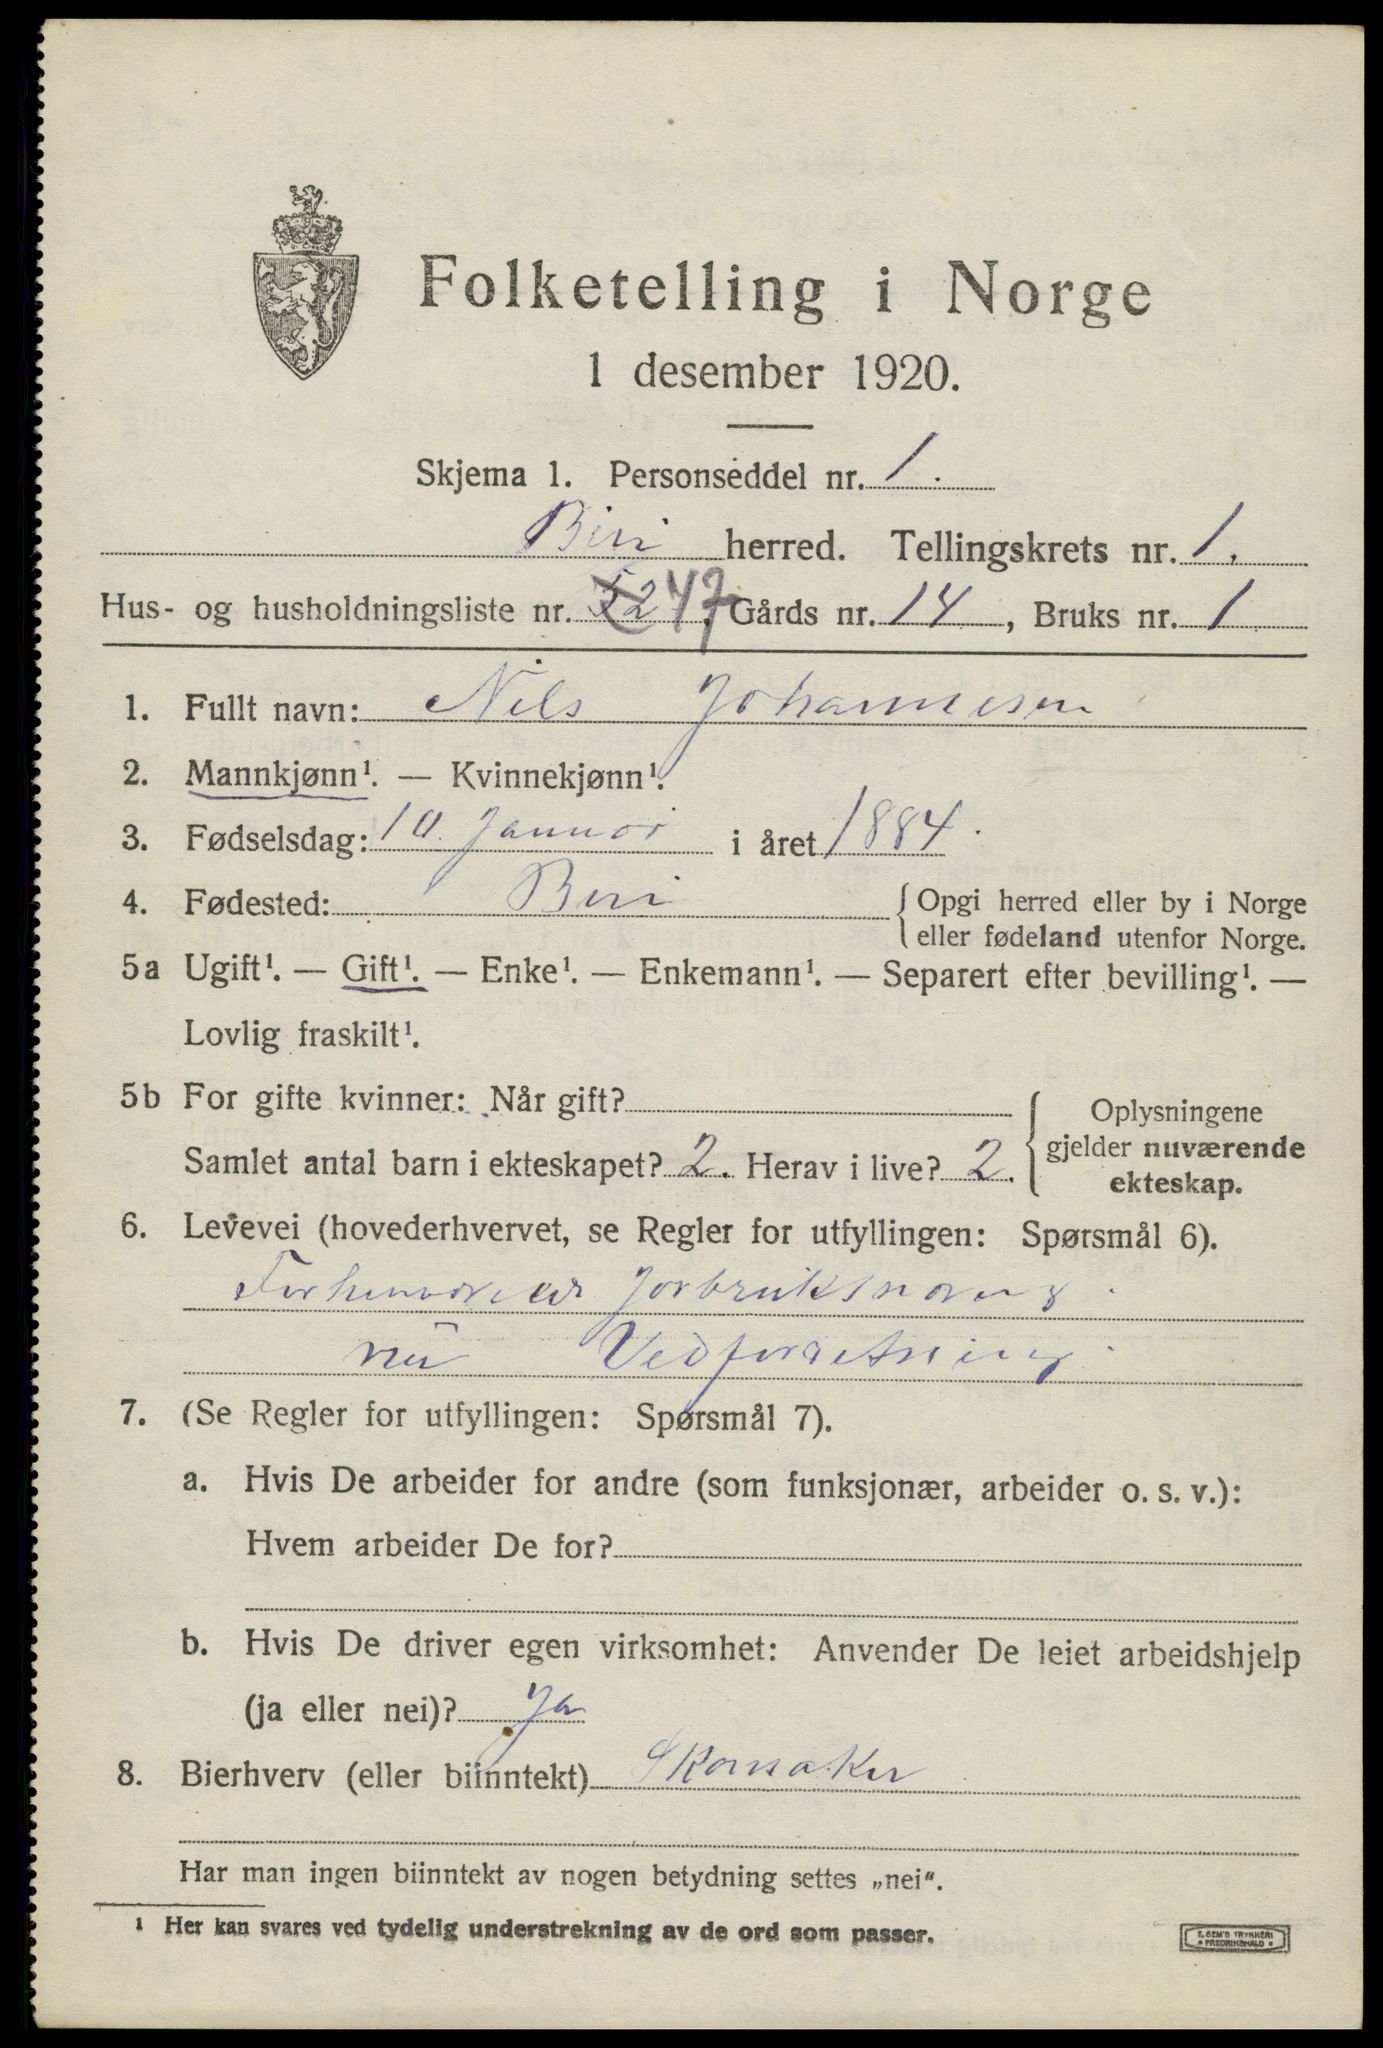 Folketelling i Norge
1 desember 1920.
Skjema 1. Personseddel nr. 1.
Biri herred. Tellingskrets nr. 1.
Hus- og husholdningsliste nr. 52 47, Gårds nr. 14, Bruks nr. 1
1. Fullt navn: Nils Johannesen
2. Mannkjønn¹. — Kvinnekjønn¹.
3. Fødselsdag: 10 Januar i året 1884.
4. Fødested: Biri {Opgi herred eller by i Norge
eller fødeland utenfor Norge.
5a Ugift¹. — Gift¹. — Enke¹. — Enkemann¹. — Separert efter bevilling¹. —
Lovlig fraskilt¹.
5b For gifte kvinner: Når gift?
Samlet antal barn i ekteskapet? 2. Herav i live? 2.
Oplysningene
gjelder nuværende
ekteskap.
6. Levevei (hovederhvervet, se Regler for utfyllingen: Spørsmål 6).
nu Vedforretning
7. (Se Regler for utfyllingen: Spørsmål 7).
a. Hvis De arbeider for andre (som funksjonær, arbeider o. s. v.):
Hvem arbeider De for?
b. Hvis De driver egen virksomhet: Anvender De leiet arbeidshjelp
(ja eller nei)? Ja
8. Bierhverv (eller biinntekt) Skomaker
Har man ingen biinntekt av nogen betydning settes „nei“.
¹ Her kan svares ved tydelig understrekning av de ord som passer.
E. SEM'S TRYKKERI
• FREDRIKSHALD •